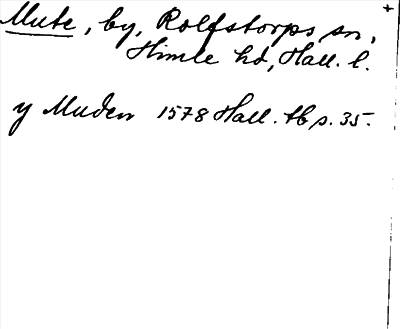 Mute, by, Rolfstorps sn,
Himle hd, Hall. l.
y Muden 1578 Hall. tb s. 35.